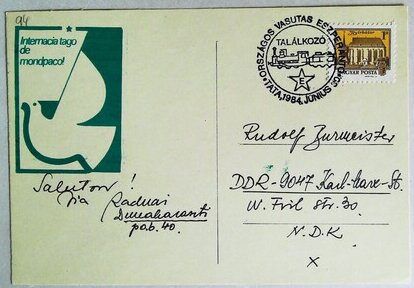 94
Internacia tago
de
mondpaco!
ORSZÁGOS VASUTAS ESZPERANTÓ
TALÁLKOZÓ
E
TATA, 1984. JUNIUS
1Ft
MAGYAR POSTA
Saluton!
Via Raduai
Dunaharaszti
po.b. 40.
Rudolf Burmeister
DDR-9047 Karl-Marx-St.
W. Fril Str. 30
N.D.K
X